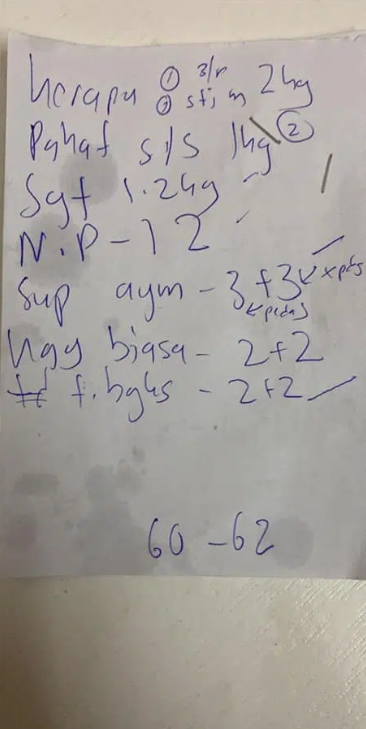 kerapu ① 3/r 2kg
② stim
Pahat s/s 1kg ②
Sgt 1.2kg
N.P - 12
Sup aym - 3+3 xpds
xpds
Ngg biasa - 2+2
t. bgks - 2+2
60 - 62